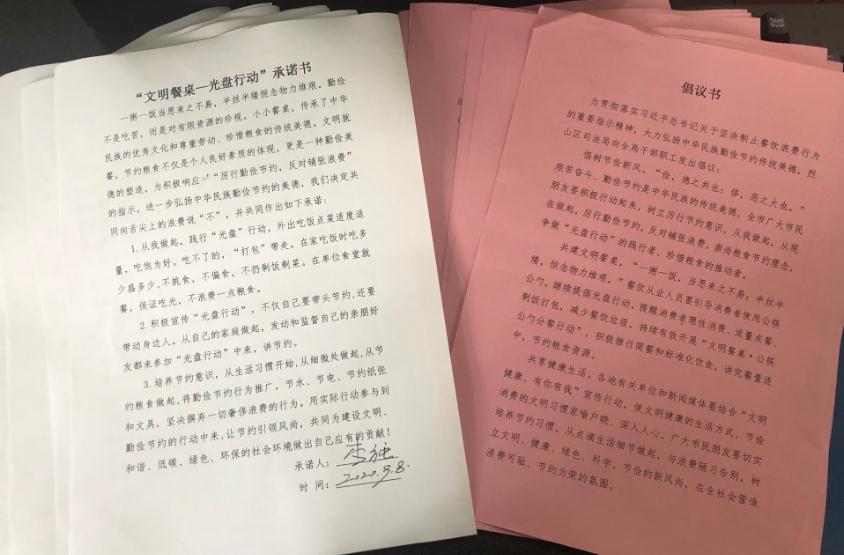 “文明餐桌—光盘行动”承诺书
一粥一饭当思来之不易，半丝半缕恒念物力维艰。勤俭
不是吃苦，而是对有限资源的珍视。小小餐桌，传承了中华
民族的优秀文化和尊重劳动、珍惜粮食的传统美德。文明就
餐，节约粮食不仅是个人良好素质的体现，更是一种勤俭美
德的塑造。为积极响应“厉行勤俭节约，反对铺张浪费”
的指示，进一步弘扬中华民族勤俭节约的美德，我们决定共
同向舌尖上的浪费说“不”，并共同作出如下承诺：
1.从我做起，践行“光盘”行动，外出吃饭点菜适度适
量，吃饱为好。吃不了的，“打包”带走。在家吃饭时吃多
少盛多少，不挑食，不偏食，不扔剩饭剩菜。在单位食堂就
餐，保证吃光，不浪费一点粮食。
2.积极宣传“光盘行动”，不仅自己要带头节约，还要
带动身边人。从自己的家庭做起，发动和监督自己的亲朋好
友都来参加“光盘行动”中来，讲节约。
3.培养节约意识，从生活习惯开始，从细微处做起，从节
约粮食做起，将勤俭节约行为推广。节水、节电、节约纸张
和文具，坚决摒弃一切奢侈浪费的行为。用实际行动参与到
勤俭节约的行动中来，让节约引领风尚，共同为建设文明、
和谐、低碳、绿色、环保的社会环境做出自己应有的贡献！
承诺人：
时 间：2020.9.8.
倡议书
为贯彻落实习近平总书记关于坚决制止餐饮浪费行为
的重要指示精神，大力弘扬中华民族勤俭节约传统美德，烈
山区司法局向全局干部职工发出倡议：
倡树节俭新风。“俭，德之共也；侈，恶之大也。”
艰苦奋斗、勤俭节约是中华民族的传统美德。全市广大市民
朋友要积极行动起来，树立厉行节约意识，从我做起，从现
在做起，厉行勤俭节约，反对铺张浪费，崇尚粮食节约理念，
争做“光盘行动”的践行者，珍惜粮食的推动者。
共建文明餐桌。“一粥一饭，当思来之不易；半丝半
缕，恒念物力维艰。”餐饮从业人员要引导消费者使用公筷
公勺，继续提倡光盘行动，提醒消费者理性消费、适量点餐、
剩饭打包，减少餐饮垃圾。持续有效开展“文明餐桌·公筷
公勺分餐行动”，积极推行简餐和标准化饮食，讲究餐量适
中，节约粮食资源。
共享健康生活。各地有关单位和新闻媒体要结合“文明
健康、有你有我”宣传行动，使文明健康的生活方式、节俭
消费的文明习惯家喻户晓、深入人心。广大市民朋友要切实
培养节约习惯，从点滴生活细节做起，与浪费陋习告别，树
立文明、健康、绿色、科学、节俭的新风尚，在全社会营造
浪费可耻、节约为荣的氛围。